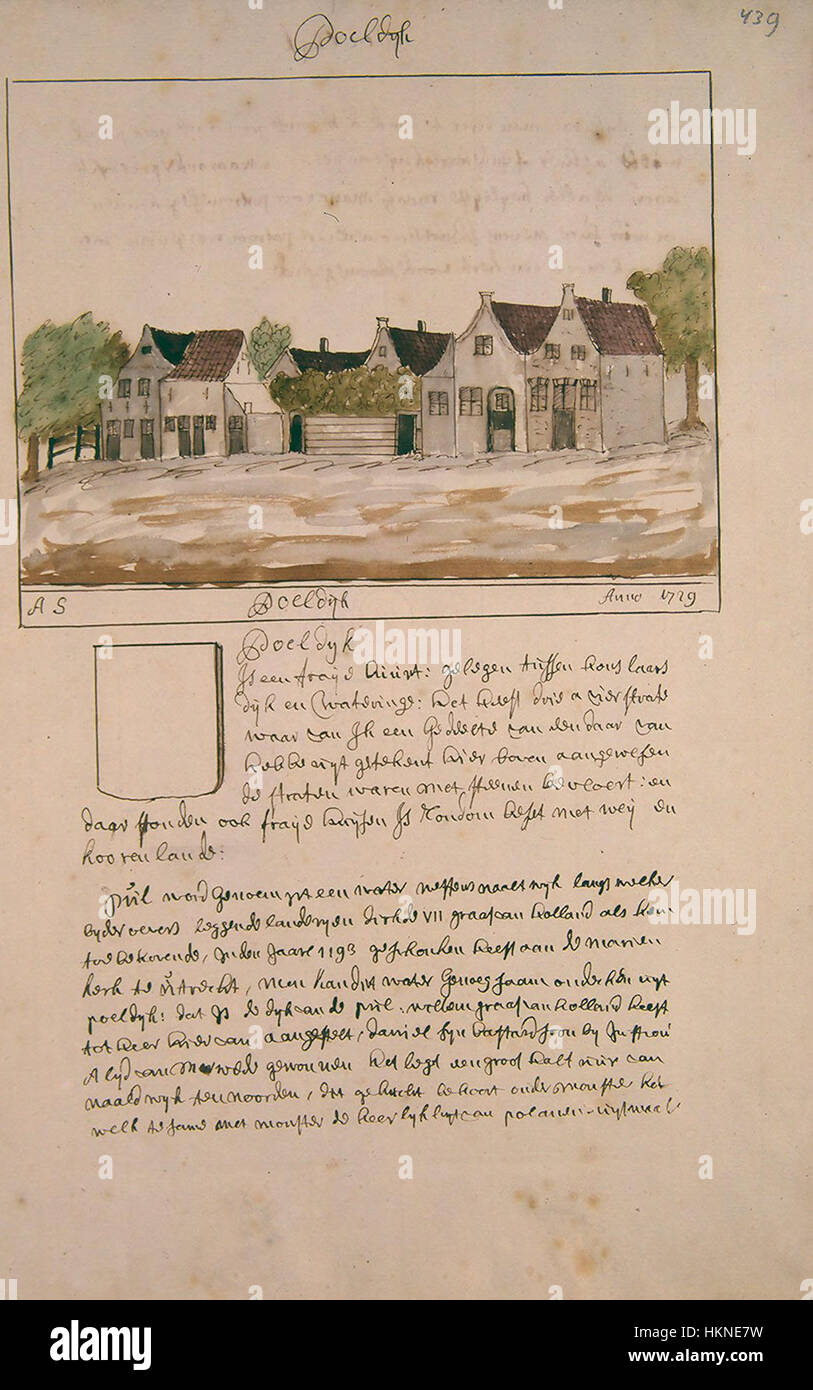 439
Poeldyk
A S
Poeldijk
Anno 1729
Poeldyk
Is een fraije buurt: gelegen tussen Hons laars
dyk en Wateringe: het heeft drie a vier strate
waar van Ik een gedeelte van den daar van
hebbe uyt getekent hier boven aangewesen
de straten waren met steenen bevloert: en
daar stonden ook fraije huijsen Is Rondom beset met weij en
kooren lande:
pül word genoemt een water neffens naaltwyk langs welker
byder oevers leggende landeryen dirk de VII graaf van holland als hem
toebehorende, in den Jaare 1193 geschonken heeft aan de marien
kerk te ütrecht, men kan dit water genoegsaam onder ken uyt
poeldyk: dat Is de dyk van de pül: willem graaf van holland heeft
tot heer hier van aangestelt, daniel syn bastard soon by Juffrou
Alyd van Merwede gewonnen het legt een groot half uür van
naaldwyk ten noorden, dit gehucht behoort onder monster het
welk te same met monster de heerlykheyt van polanen uytmaakt
alamy
Image ID: HKNE7W
www.alamy.com